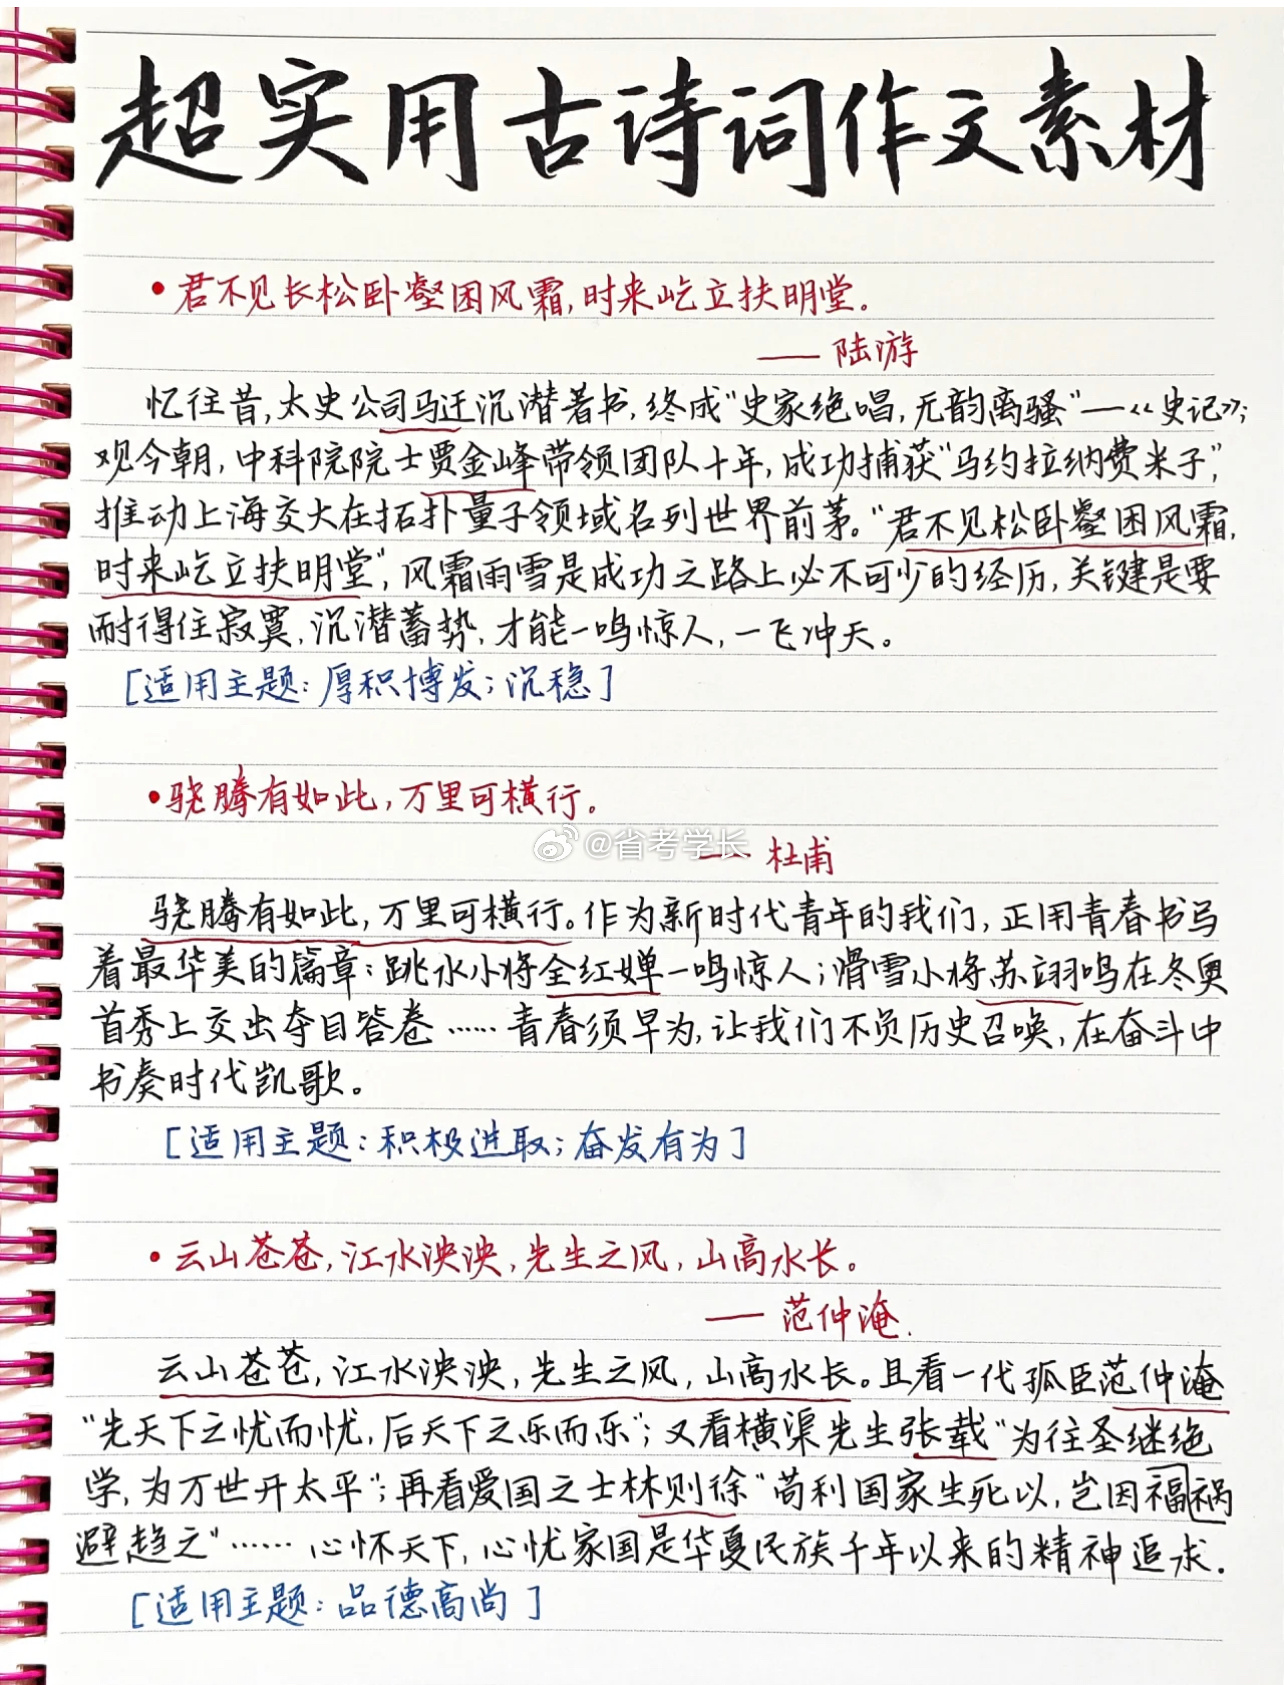 超实用古诗词作文素材
•君不见长松卧壑困风霜,时来屹立扶明堂。
——陆游
忆往昔,太史公司马迁沉潜著书,终成"史家绝唱,无韵离骚"—《史记》;
观今朝,中科院院士贾金峰带领团队十年,成功捕获"马约拉纳费米子",
推动上海交大在拓扑量子领域名列世界前茅。"君不见松卧壑困风霜,
时来屹立扶明堂",风霜雨雪是成功之路上必不可少的经历,关键是要
耐得住寂寞,沉潜蓄势,才能一鸣惊人,一飞冲天。
[适用主题:厚积博发;沉稳]
•骁腾有如此,万里可横行。
@省考学长
——杜甫
骁腾有如此,万里可横行。作为新时代青年的我们,正用青春书写
着最华美的篇章:跳水小将全红婵一鸣惊人;滑雪小将苏翊鸣在冬奥
首秀上交出夺目答卷……青春须早为,让我们不负历史召唤,在奋斗中
书奏时代凯歌。
[适用主题:积极进取;奋发有为]
•云山苍苍,江水泱泱,先生之风,山高水长。
——范仲淹.
云山苍苍,江水泱泱,先生之风,山高水长。且看一代孤臣范仲淹
"先天下之忧而忧,后天下之乐而乐";又看横渠先生张载"为往圣继绝
学,为万世开太平";再看爱国之士林则徐"苟利国家生死以,岂因福祸
避趋之"……心怀天下,心忧家国是华夏民族千年以来的精神追求.
[适用主题:品德高尚]